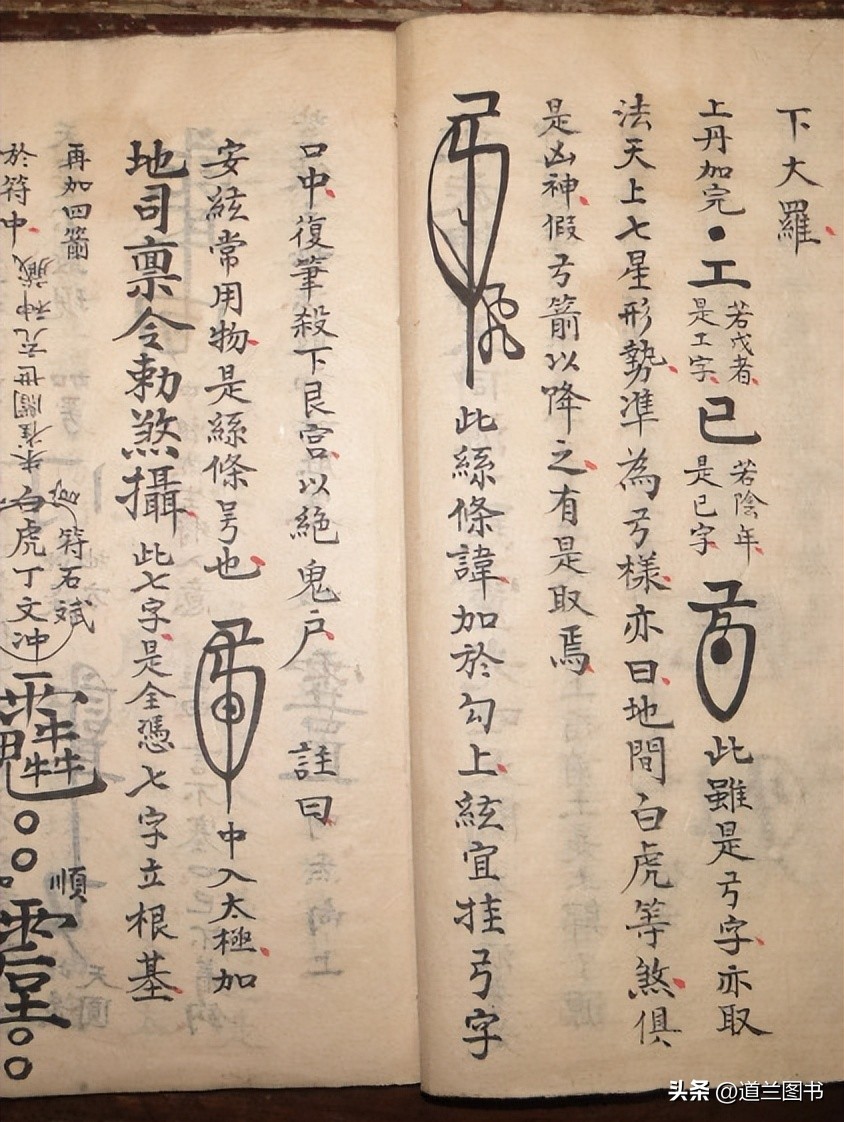 下大羅
上丹加完 工 若戊者是工字 已 若陰年是已字 此雖是弓字亦取
法天上七星形勢準為弓樣亦曰地間白虎等煞俱
是凶神假弓箭以降之有是取焉
此絲條諱加於勾上絃宜挂弓字
口中復筆殺下艮宮以絕鬼户 註曰
安絃常用物是絲條号也 中入太極加
地司禀令勅煞攝 此七字是全憑七字立根基
再加四箭 符石斌 順
於符中 朱雀闇世充神藏 白虎丁文冲
头条 @道兰图书